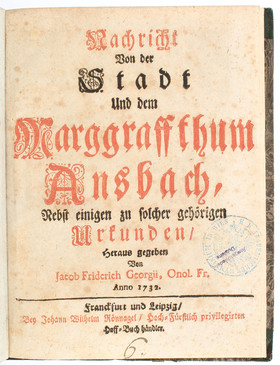 Nachricht
Von der
Stadt
Und dem
Marggraffthum
Ansbach,
Nebst einigen zu solcher gehörigen
Urkunden/
Heraus gegeben
Von
Jacob Friderich Georgii, Onol. Fr.
Anno 1732.
Franckfurt und Leipzig/
Bey Johann Wilhelm Rönnagel/ Hoch-Fürstlich privilegirten
Hoff-Buchhändler.
6.